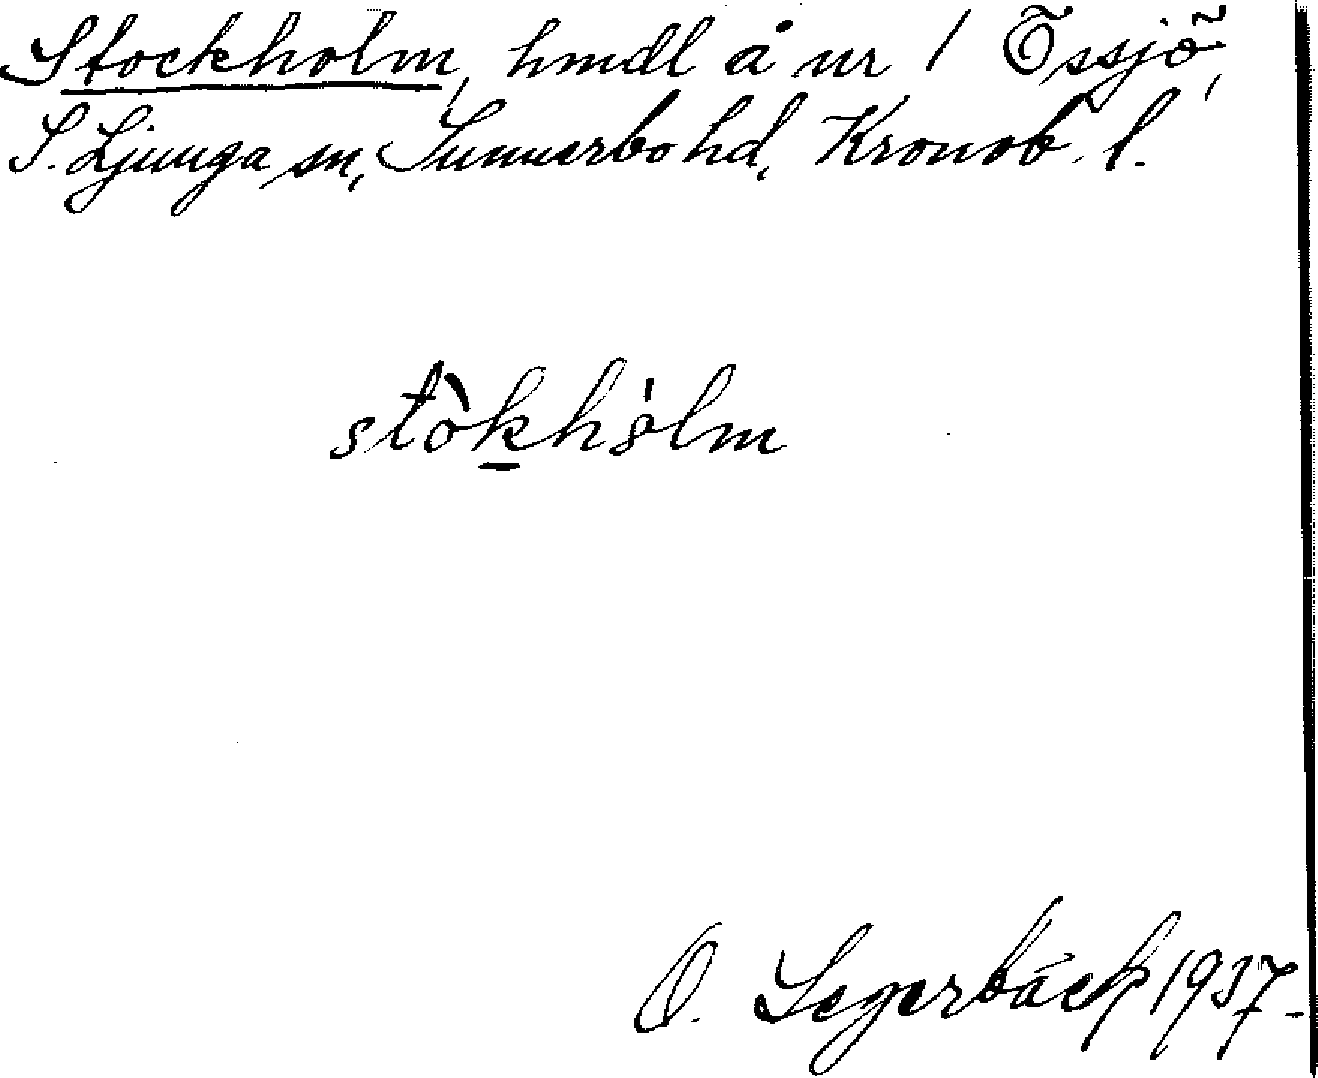 Stockholm, hmdl å ur 1 Össjö,
S. Ljunga sn, Sunnerbo hd, Kronob. l.
stòkhòlm
O. Segerbäck 1937.